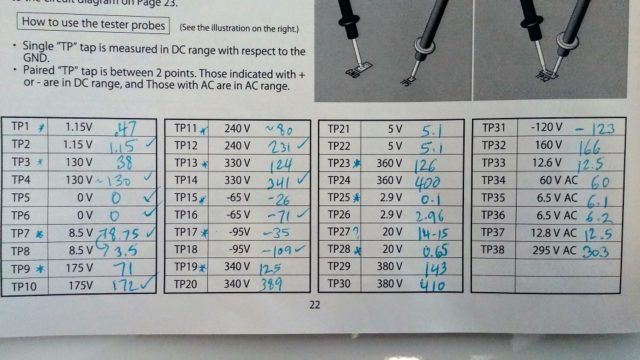 to the circuit diagram on Page 23.
How to use the tester probes
(See the illustration on the right.)
• Single "TP" tap is measured in DC range with respect to the
GND.
• Paired "TP" tap is between 2 points. Those indicated with +
or - are in DC range, and Those with AC are in AC range.
TP1 * 1.15V .47
TP2 1.15V 1.15 ✓
TP3 * 130 V 38
TP4 130 V ~130 ✓
TP5 0 V 0 ✓
TP6 0 V 0 ✓
TP7 * 8.5 V 8.75 ✓
TP8 8.5 V 3.5
TP9 * 175 V 71
TP10 175V 172 ✓
TP11 * 240 V ~80
TP12 240 V 231 ✓
TP13 * 330 V 124
TP14 330 V 341 ✓
TP15 * -65 V -26
TP16 -65 V -71 ✓
TP17 * -95V -35
TP18 -95V -109 ✓
TP19 * 340 V 125
TP20 340 V 389
TP21 5 V 5.1
TP22 5 V 5.1
TP23 * 360 V 126
TP24 360 V 400
TP25 * 2.9 V 0.1
TP26 2.9 V 2.96
TP27 ? 20 V 14-15
TP28 * 20 V 0.65
TP29 380 V 143
TP30 380 V 410
TP31 -120 V -123
TP32 160 V 166
TP33 12.6 V 12.5
TP34 60 V AC 60
TP35 6.5 V AC 6.1
TP36 6.5 V AC 6.2
TP37 12.8 V AC 12.5
TP38 295 V AC 303
22